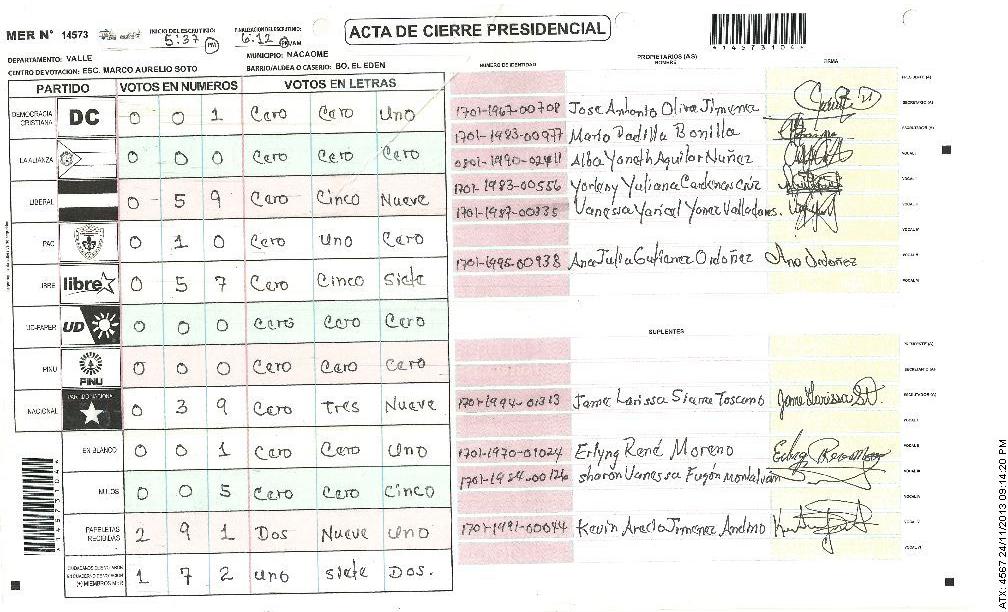 MER N° 14573 INICIO DEL ESCRUTINIO: 5:37 PM FINALIZACION DEL ESCRUTINIO: 6:12 PM/AM
ACTA DE CIERRE PRESIDENCIAL
*1457310*
DEPARTAMENTO: VALLE MUNICIPIO: NACAOME
CENTRO DE VOTACION: ESC. MARCO AURELIO SOTO BARRIO/ALDEA O CASERIO: BO. EL EDEN
PARTIDO VOTOS EN NUMEROS VOTOS EN LETRAS
DEMOCRACIA CRISTIANA DC 0 0 1 Cero Cero Uno
LA ALIANZA 0 0 0 Cero Cero Cero
LIBERAL 0 5 9 Cero Cinco Nueve
PAC 0 1 0 Cero Uno Cero
LIBRE libre 0 5 7 Cero Cinco Siete
UD-FAPER UD 0 0 0 Cero Cero Cero
PINU PINU 0 0 0 Cero Cero Cero
NACIONAL PARTIDO NACIONAL 0 3 9 Cero Tres Nueve
EN BLANCO 0 0 1 Cero Cero Uno
NULOS 0 0 5 Cero Cero Cinco
PAPELETAS RECIBIDAS 2 9 1 Dos Nueve Uno
1 7 2 Uno Siete Dos.
NUMERO DE IDENTIDAD PROPIETARIOS (AS) NOMBRE FIRMA
PRESIDENTE (A)
1701-1967-00708 Jose Antonio Oliva Jimenez SECRETARIO (A)
1701-1983-00977 Mario Padilla Bonilla ESCRUTADOR (A)
0801-1990-02411 Alba Yaneth Aguilar Nuñez VOCAL I
1701-1983-00556 Yorleny Yuliana Cardenas Cruz
1701-1987-00335 Vanessa Yaricel Yanez Valladares.
1701-1995-00938 Ana Julia Gutierrez Ordoñez Ana Ordoñez
SUPLENTES
PRESIDENTE (A)
SECRETARIO (A)
1701-1994-01313 Larissa ESCRUTADOR (A)
1701-1970-01024 Erlyng René Moreno
1701-1984-00126 Sharon Vanessa Fugón Montalván
1701-1991-00044 Kevin Jimenez Andino
ATX: 4567 24/11/2013 09:14:20 PM